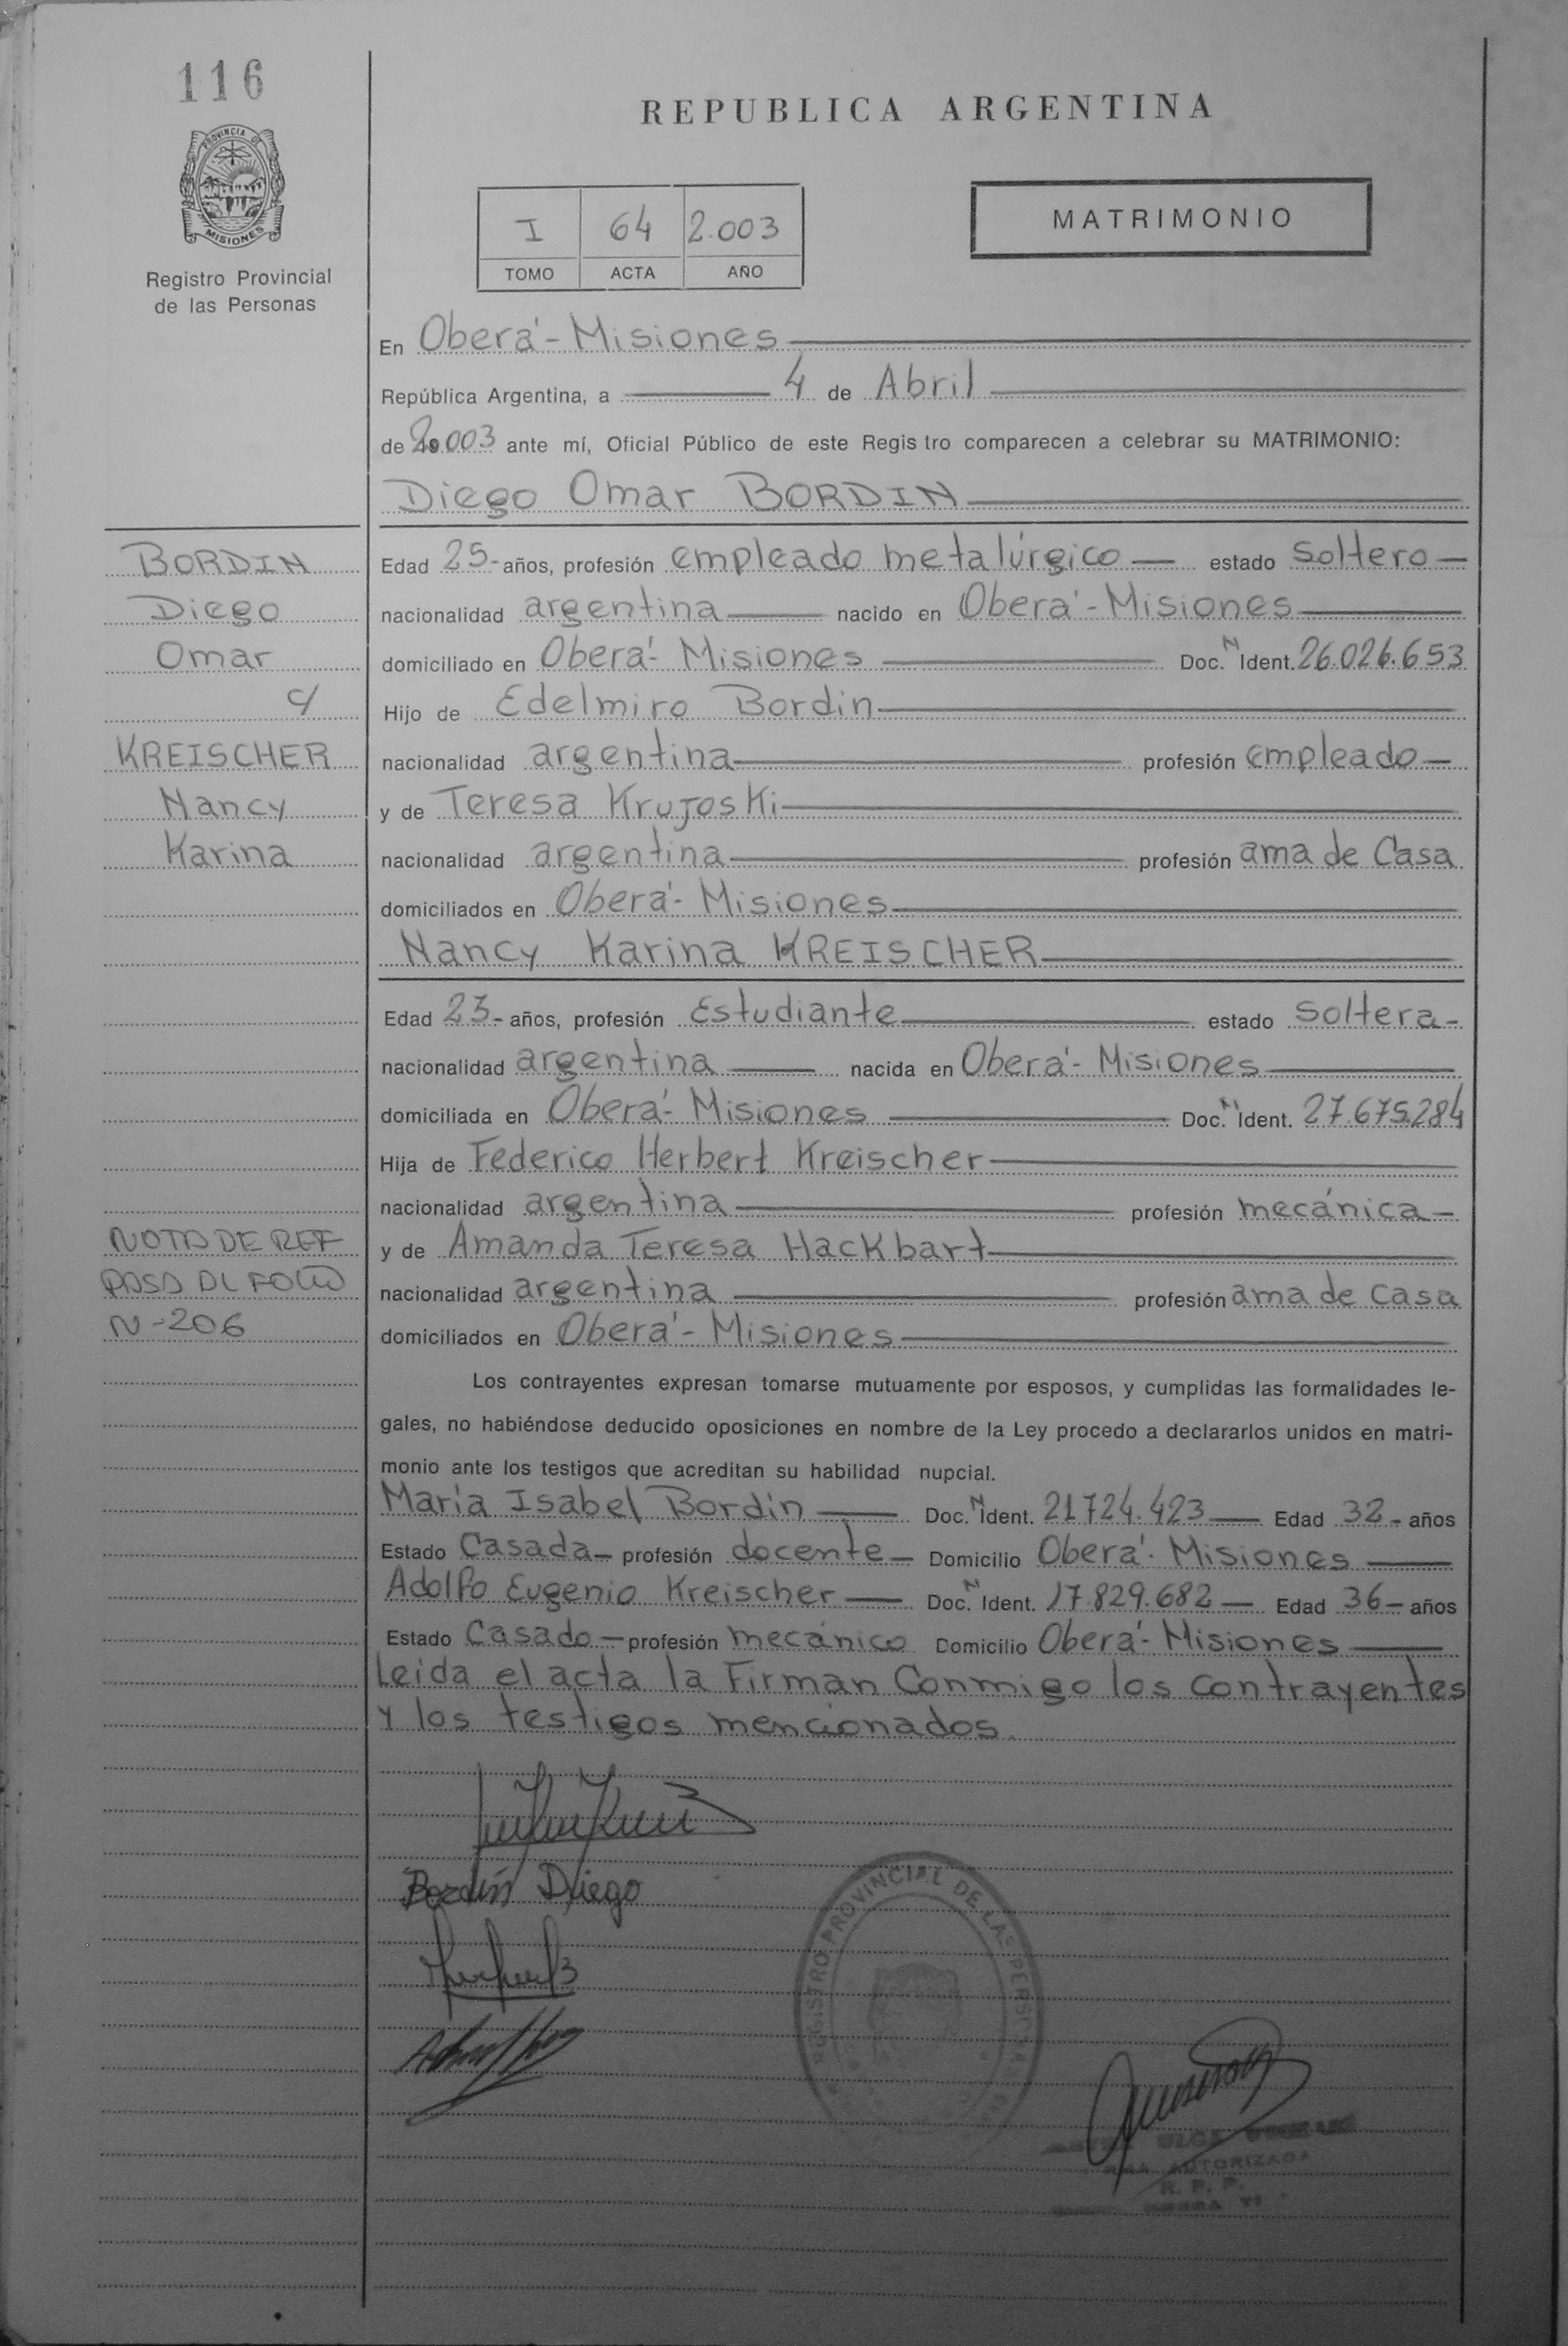 116
REPUBLICA ARGENTINA
PROVINCIA DE
MISIONES
Registro Provincial
de las Personas
I 64 2.003
TOMO ACTA AÑO
MATRIMONIO
En Oberá - Misiones
República Argentina, a 4 de Abril
de 2.003 ante mí, Oficial Público de este Regis tro comparecen a celebrar su MATRIMONIO:
Diego Omar BORDIN
BORDIN
Diego
Omar
c/
KREISCHER
Nancy
Karina
Edad 25- años, profesión empleado metalúrgico estado soltero
nacionalidad argentina nacido en Oberá - Misiones
domiciliado en Oberá - Misiones Doc. N Ident. 26.026.653
Hijo de Edelmiro Bordin
nacionalidad argentina profesión empleado
y de Teresa Krujoski
nacionalidad argentina profesión ama de Casa
domiciliados en Oberá - Misiones
Nancy Karina KREISCHER
Edad 23- años, profesión Estudiante estado soltera-
nacionalidad argentina nacida en Oberá - Misiones
domiciliada en Oberá - Misiones Doc. N Ident. 27.675.284
Hija de Federico Herbert Kreischer
nacionalidad argentina profesión mecánica
y de Amanda Teresa Hackbart
nacionalidad argentina profesión ama de casa
domiciliados en Oberá - Misiones
NOTA DE REF
PASA AL FOLIO
N-206
Los contrayentes expresan tomarse mutuamente por esposos, y cumplidas las formalidades le-
gales, no habiéndose deducido oposiciones en nombre de la Ley procedo a declararlos unidos en matri-
monio ante los testigos que acreditan su habilidad nupcial.
María Isabel Bordin Doc. N Ident. 21724.423 Edad 32- años
Estado Casada profesión docente Domicilio Oberá - Misiones
Adolfo Eugenio Kreischer Doc. N Ident. 17.829.682 Edad 36- años
Estado Casado profesión mecánico Domicilio Oberá - Misiones
Leida el acta la Firman Conmigo los contrayentes
y los testigos mencionados.
Bordín Diego
REGISTRO PROVINCIAL DE LAS PERSONAS
AUTORIZADA
R. P. P.